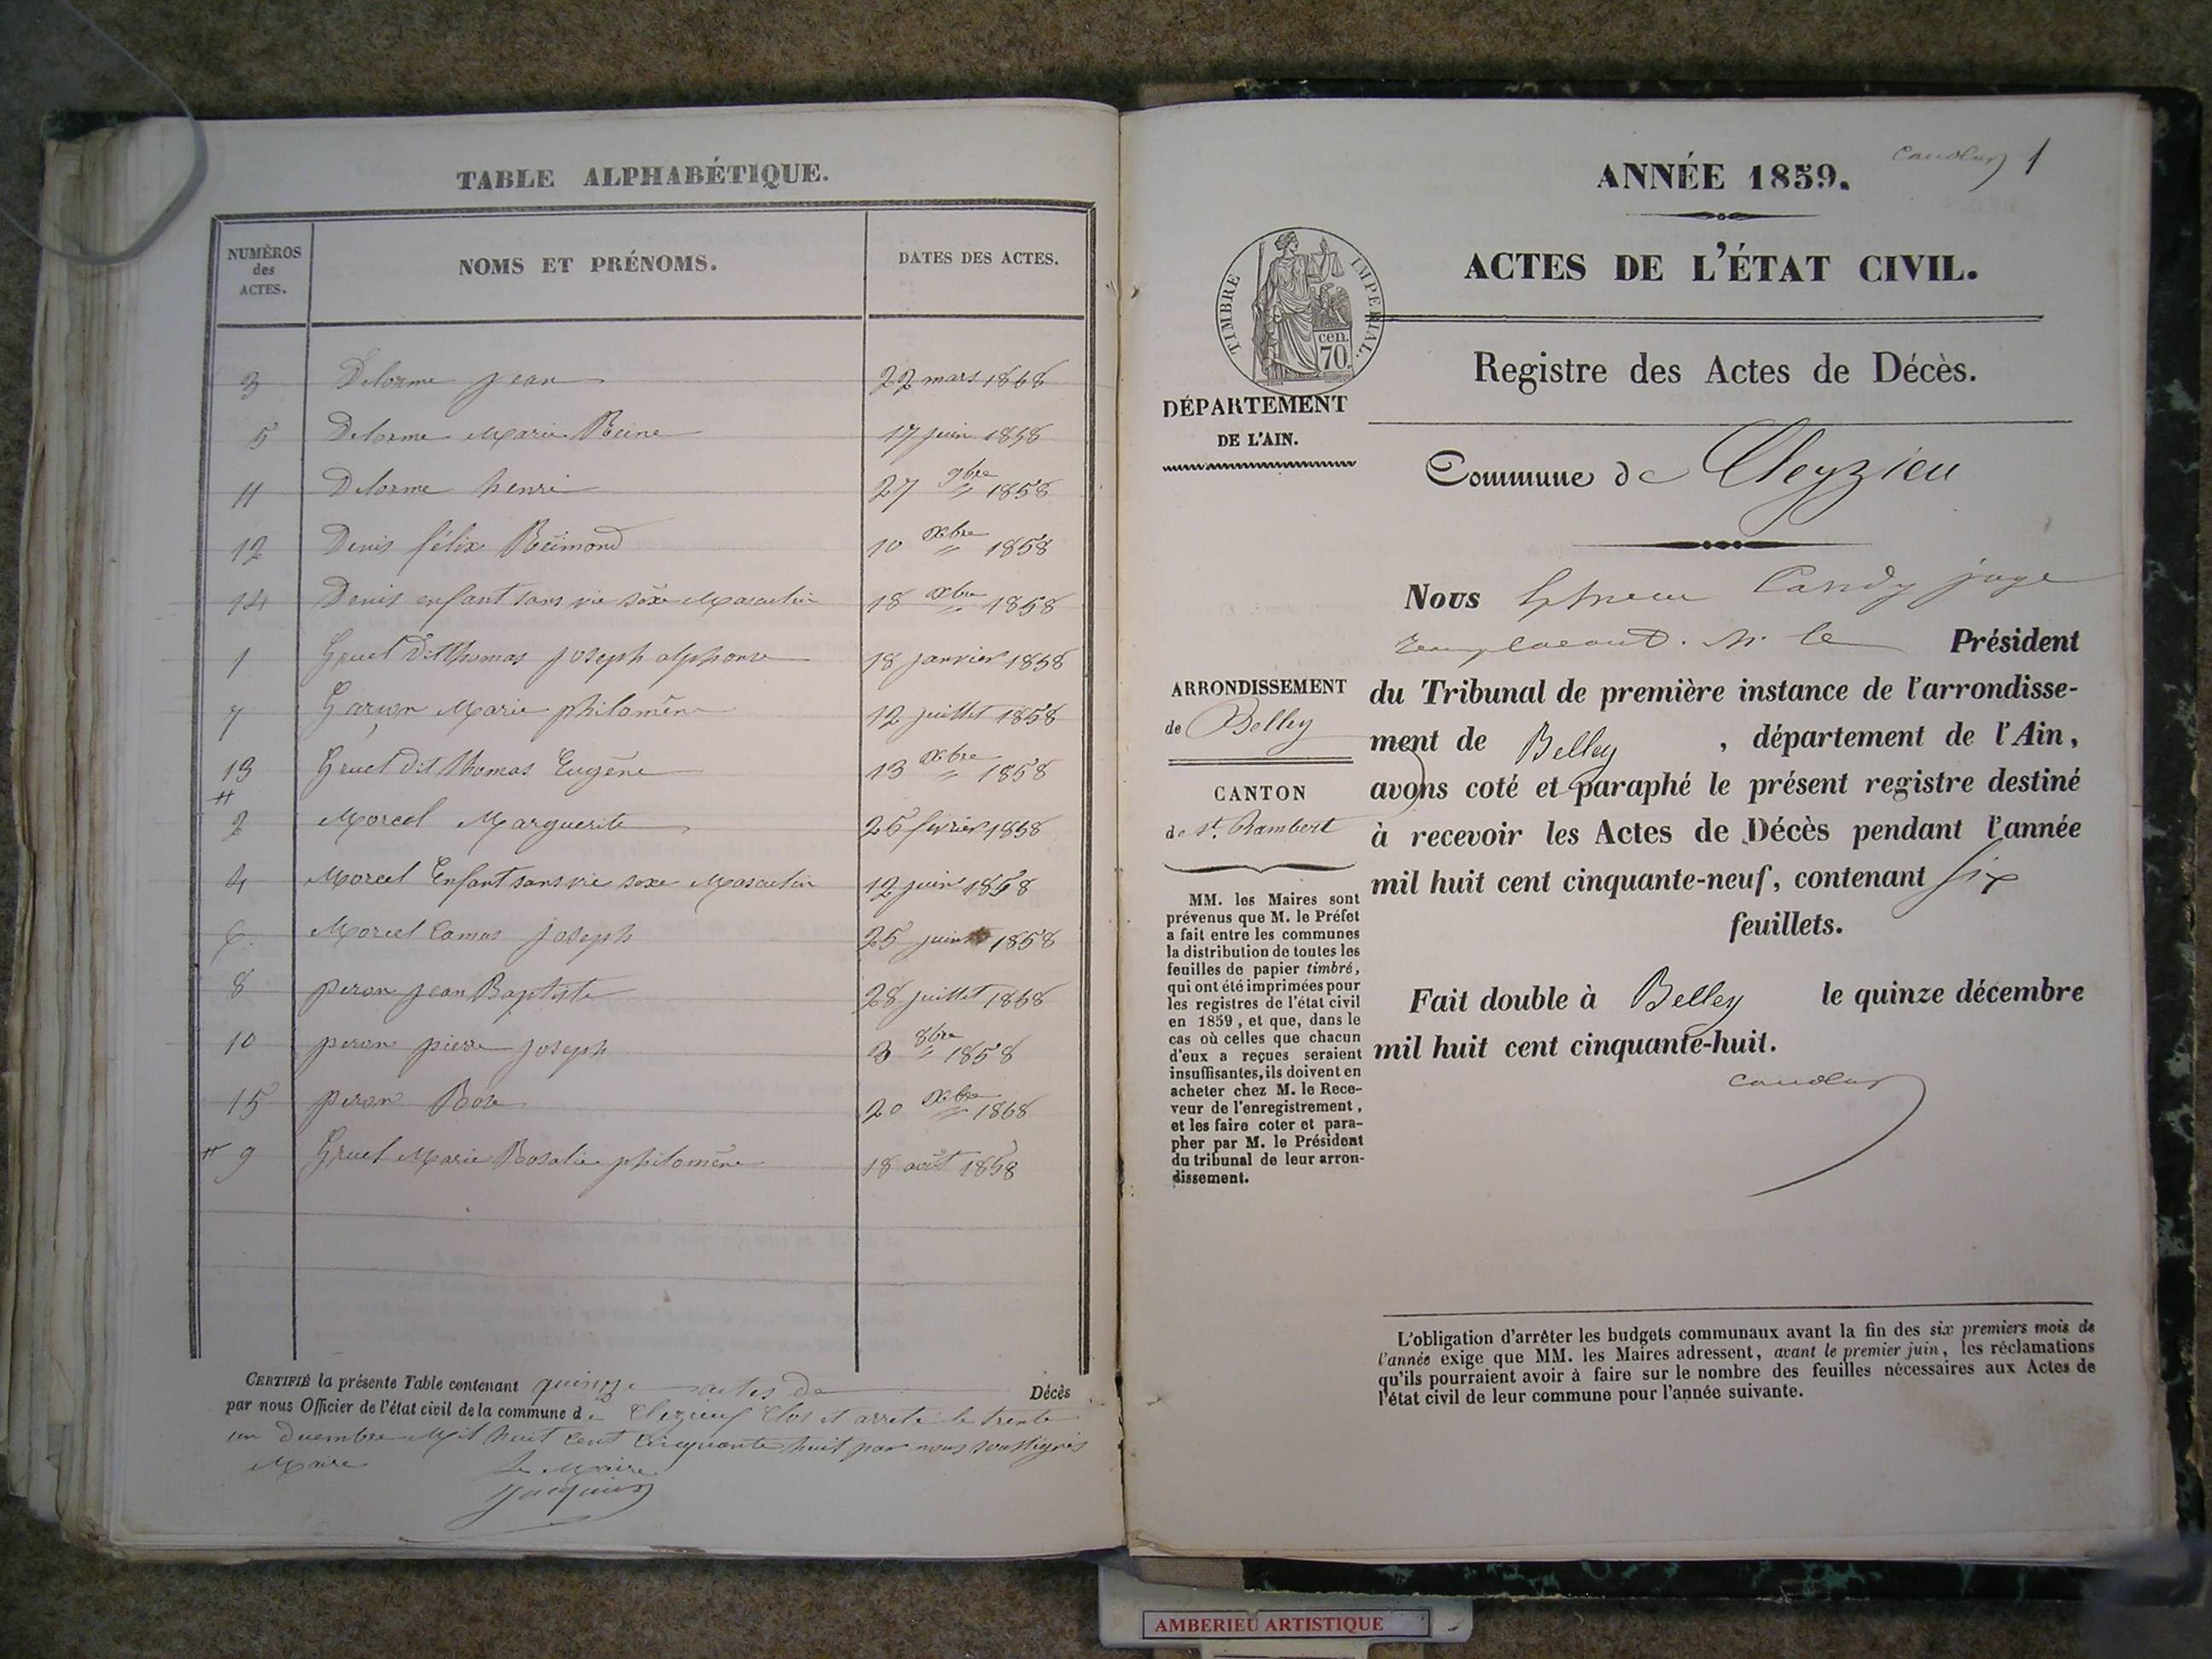 TABLE ALPHABÉTIQUE.
NUMÉROS des ACTES. NOMS ET PRÉNOMS. DATES DES ACTES.
3 Delorme jean 22 mars 1858
5 Delorme Marie Reine 17 juin 1858
11 Delorme henri 27 9bre 1858
12 Denis félix Reimond 10 Xbre 1858
14 Denis enfant sans vie sexe Masculin 18 Xbre 1858
1 Gruel Dit Thomas Joseph alphonse 18 janvier 1858
7 Garçon Marie philomène 12 juillet 1858
13 Gruel dit Thomas Eugène 13 Xbre 1858
#
2 Morcel Marguerite 26 février 1858
4 Morcel Enfant sans vie sexe Masculin 12 juin 1858
6. Morcel Camus Joseph 25 juin 1858
8 peron jean Baptiste 28 juillet 1858
10 peron pierre Joseph 3 8bre 1858
15 peron Rose 20 Xbre 1858
# 9 Gruel Marie Rosalie philomène 18 août 1858
CERTIFIÉ la présente Table contenant quinze actes de Décès
par nous Officier de l'état civil de la commune de Cleyzieu Clos et arrêté le trente
un Décembre Mil huit Cent Cinquante huit par nous soussignés
Maire
Le Maire
Jacquin
1
ANNÉE 1859.
ACTES DE L'ÉTAT CIVIL.
TIMBRE IMPERIAL.
cen.
70.
Registre des Actes de Décès.
DÉPARTEMENT
DE L'AIN.
Commune de Cleyzieu
Nous Candy juge
remplaçant M. le Président
ARRONDISSEMENT
de Belley
du Tribunal de première instance de l'arrondisse-
ment de Belley , département de l'Ain,
avons coté et paraphé le présent registre destiné
à recevoir les Actes de Décès pendant l'année
mil huit cent cinquante-neuf, contenant six
feuillets.
CANTON
de St. Rambert
MM. les Maires sont
prévenus que M. le Préfet
a fait entre les communes
la distribution de toutes les
feuilles de papier timbré,
qui ont été imprimées pour
les registres de l'état civil
en 1859, et que, dans le
cas où celles que chacun
d'eux a reçues seraient
insuffisantes, ils doivent en
acheter chez M. le Rece-
veur de l'enregistrement,
et les faire coter et para-
pher par M. le Président
du tribunal de leur arron-
dissement.
Fait double à Belley le quinze décembre
mil huit cent cinquante-huit.
L'obligation d'arrêter les budgets communaux avant la fin des six premiers mois de
l'année exige que MM. les Maires adressent, avant le premier juin, les réclamations
qu'ils pourraient avoir à faire sur le nombre des feuilles nécessaires aux Actes de
l'état civil de leur commune pour l'année suivante.
AMBERIEU ARTISTIQUE